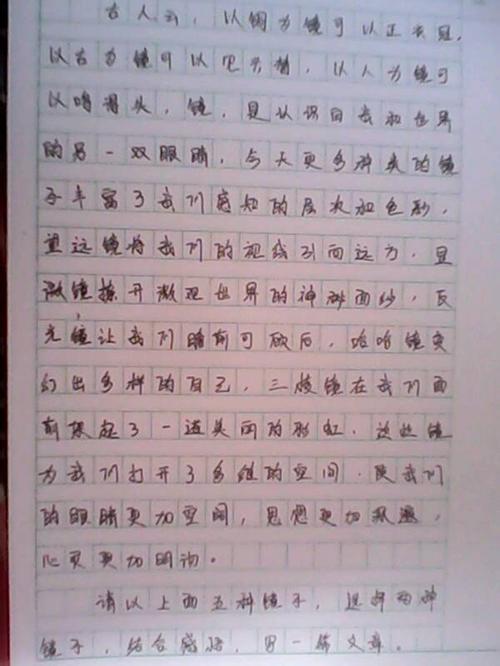 古人云，以铜为镜可以正衣冠，
以古为镜可以见兴替，以人为镜可
以明得失，镜，是认识自我和世界
的另一双眼睛，今天更多种类的镜
子丰富了我们感知的层次和色彩，
望远镜将我们的视线引向远方，显
微镜撩开微观世界的神秘面纱，反
光镜让我们瞻前可顾后，哈哈镜变
幻出多样的自己，三棱镜在我们面
前架起了一道美丽的彩虹，这些镜
为我们打开了多维的空间，使我们
的眼睛更加空阔，思想更加
心灵更加明
请以上面五种镜子，选择两种
镜子，结合感悟，写一篇文章。